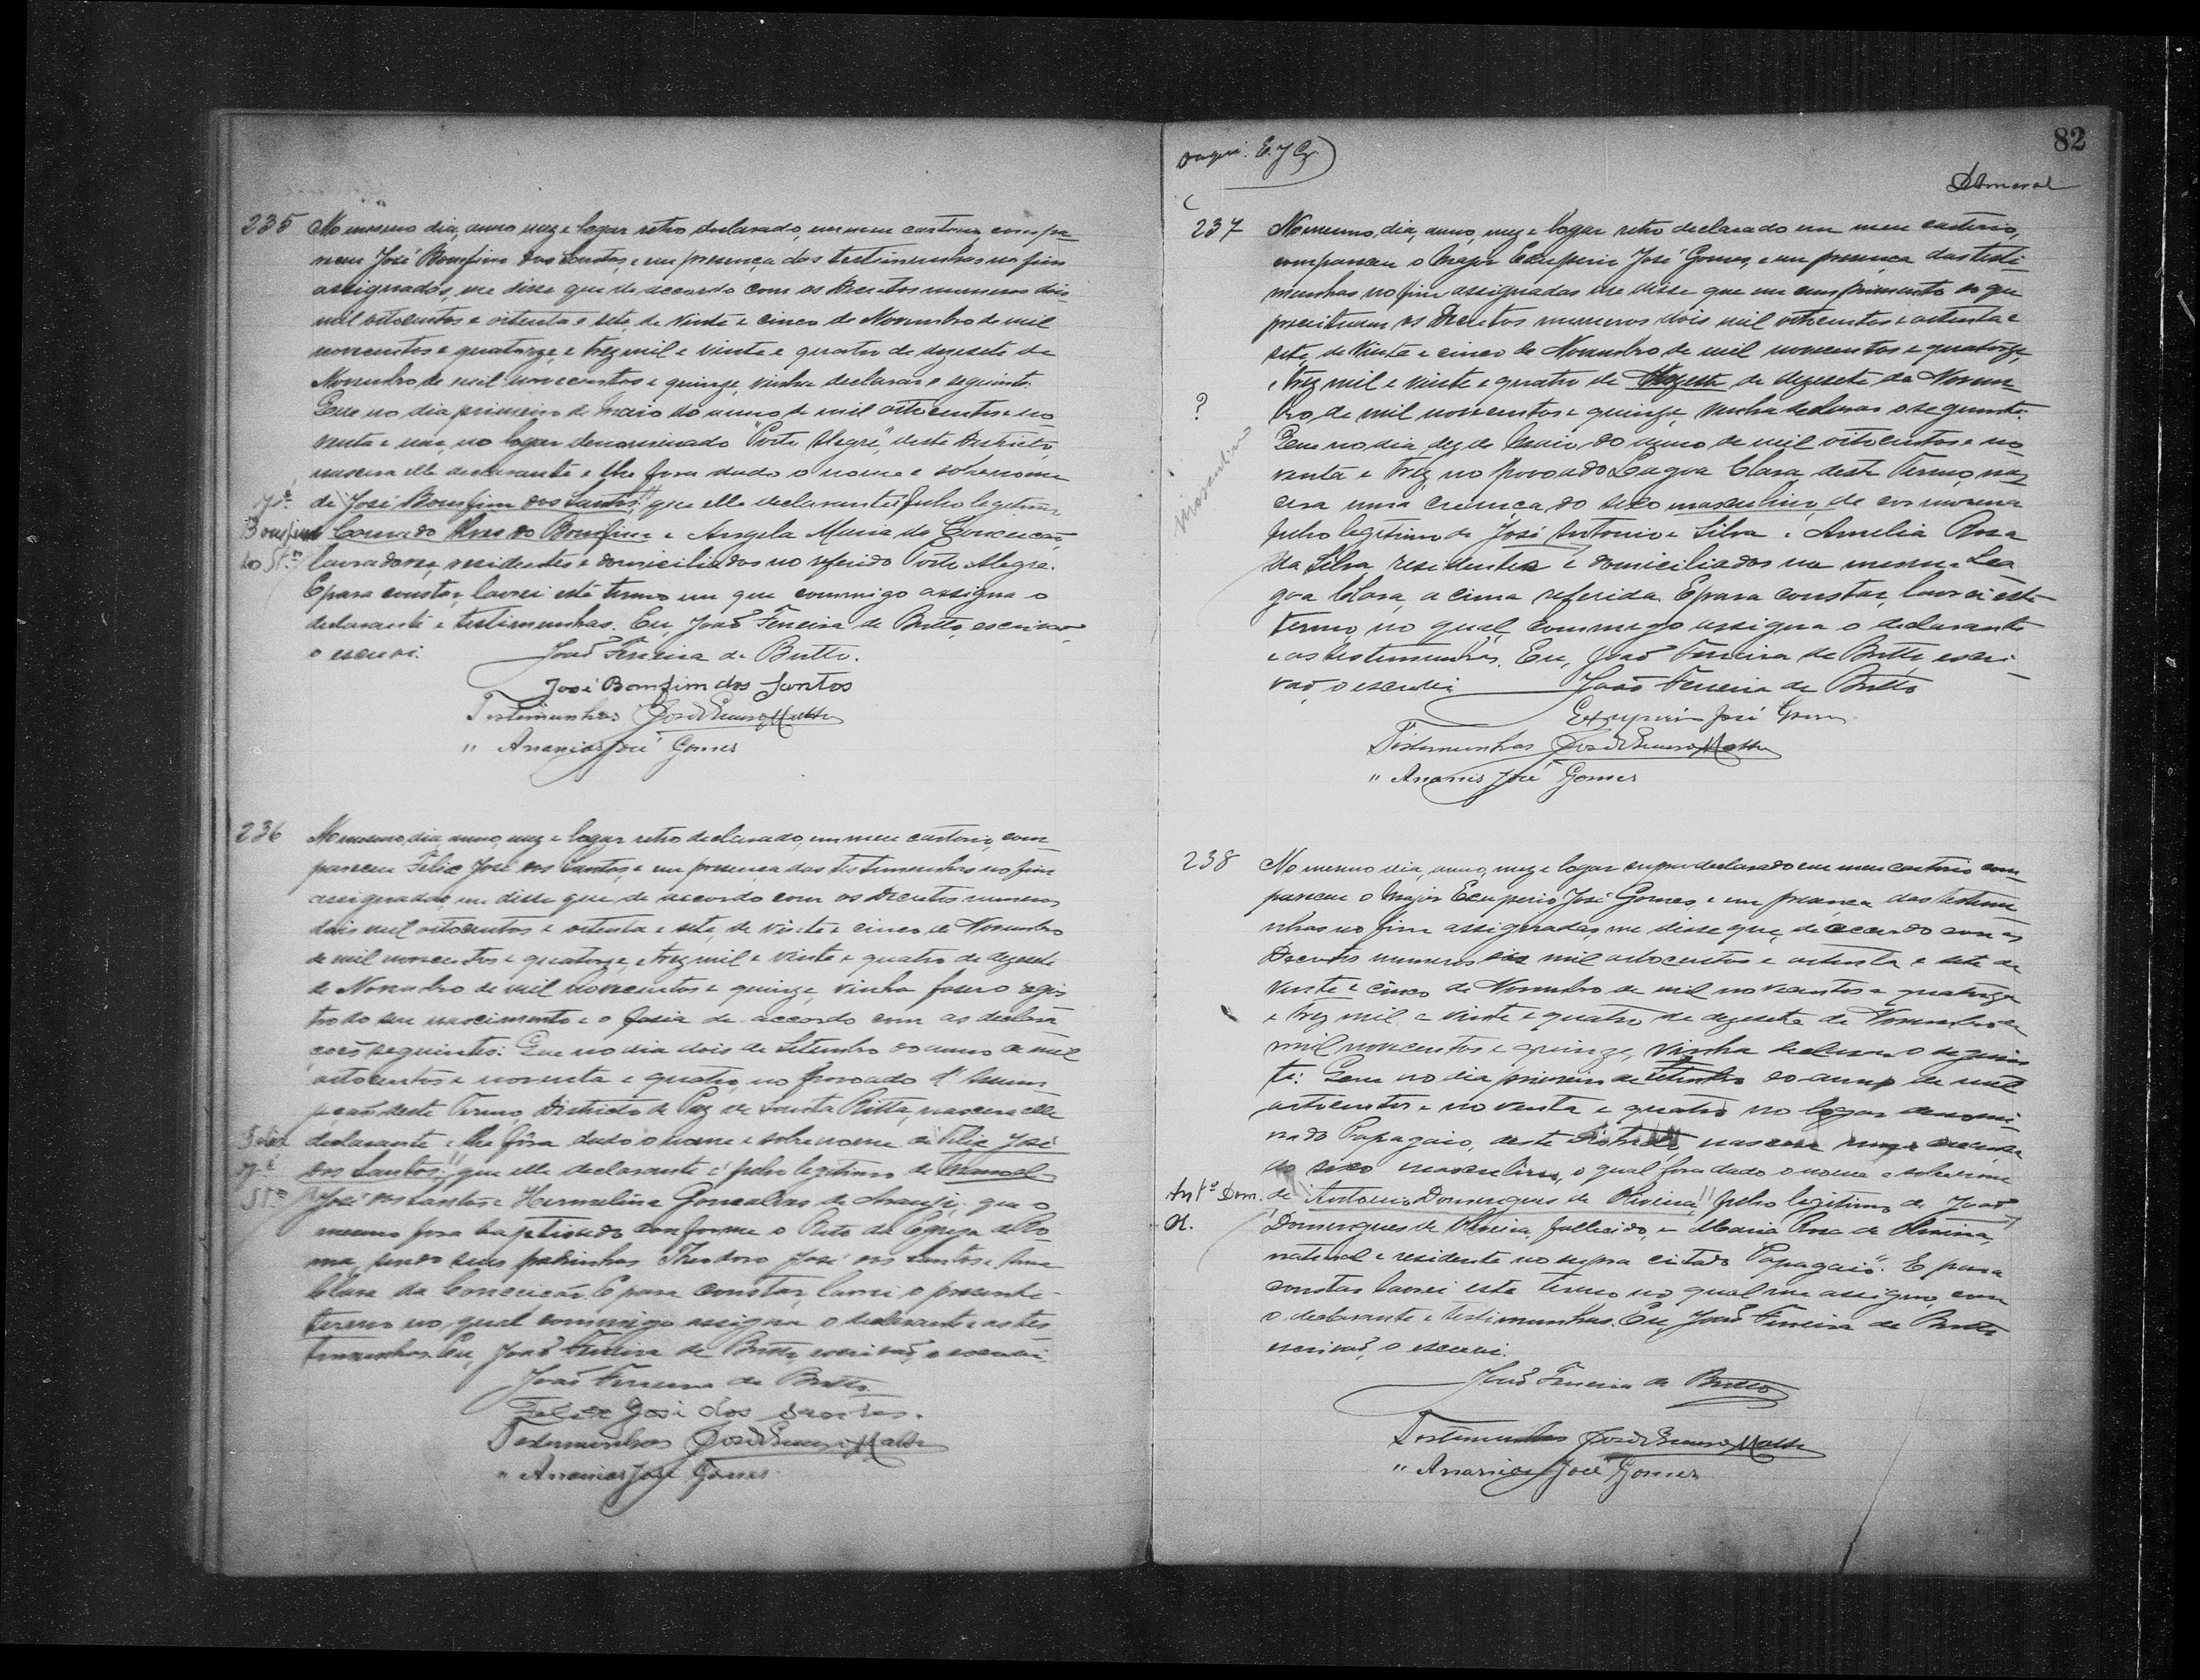 235 No mesmo dia, anno mez e logar retro declarado, em meu cartorio compa-
receu José Bomfim dos Santos, e em presença das testimunhas no fim
assignadas, me disse que de accordo com os Decretos numeros dois
mil oitocentos e oitenta e sete de vinte e cinco de Novembro de mil
novecentos e quatorze e trez mil e vinte e quatro de dezesete de
Novembro de mil novecentos e quinze, vinha declarar o seguinte:
Que no dia primeiro de Maio do anno de mil oitocentos e no-
venta e um, no logar denominado "Porto Alegre", deste Districto,
nascera elle declarante e lhe fora dado o nome e sobrenome
de "José Bomfim dos Santos" que elle declarante é filho legitimo
Bomfim
dos Stos
do Bomfim e Angela Maria da Conceição
lavradores, residentes e domiciliados no referido Porto Alegre.
E para constar, lavrei este termo em que commigo assigna o
declarante e testimunhas. Eu, João Ferreira de Britto, escrivão
o escrevi.
João Ferreira de Britto.
José Bomfim dos Santos
Testimunhas José
" Ananias José Gomes
236 No mesmo dia, anno, mez e logar retro declarado, em meu cartorio, com-
pareceu Felix José dos Santos, e em presença das testimunhas no fim
assignadas, me disse que de accordo com os Decretos numeros
dois mil oitocentos e oitenta e sete, de vinte e cinco de Novembro
de mil novecentos e quatorze, e trez mil e vinte e quatro de dezesete
de Novembro de mil novecentos e quinze, vinha faser o regis-
tro do seu nascimento e o fasia de accordo com as declara-
ções seguintes: Que no dia dois de Setembro do anno de mil
oitocentos e noventa e quatro, no povoado d'Assum-
pção deste Termo, Districto de Paz de Santa Ritta, nascera elle
declarante e lhe fôra dado o nome e sobrenome de "Felix José
dos Santos"; que elle declarante é filho legitimo de Manoel
José dos Santos e Hermelina Gonçalves de Araujo; que o
mesmo fora baptisado conforme o Rito da Egreja de Ro-
ma, sendo seus padrinhos Theodoro José dos Santos e Anna
Clara da Conceição. E para constar, lavrei o presente
termo no qual commigo assigna o declarante e as tes-
timunhas. Eu, João Ferreira de Britto, escrivão, o escrevi.
João Ferreira de Britto
Felix José dos Santos.
Testemunhas José
" Ananias José Gomes
82
Amaral
237 No mesmo, dia, anno, mez e logar retro declarado em meu cartorio,
compareceu o Major Exuperio José Gomes, e em presença das testi-
munhas no fim assignadas me disse que em cumprimento ao que
preceituam os Decretos numeros dois mil oitocentos e oitenta e
sete, de vinte e cinco de Novembro de mil novecentos e quatorze,
e trez mil e vinte e quatro de de dezesete de Novem-
? bro de mil novecentos e quinze, vinha declarar o seguinte:
Que no dia dez de Maio do anno de mil oitocentos e no-
venta e trez no povoado Lagoa Clara deste Termo, nas-
cera uma creança do sexo masculino, de cor morena
filho legitimo de José Antonio e Silva e Amelia Rosa
da Silva, residentes e domiciliados na mesma La-
goa Clara, acima referida. E para constar, lavrei este
termo, no qual commigo assigna o declarante
e as testemunhas. Eu, João Ferreira de Britto, escri-
vão, o escrevi João Ferreira de Britto
Exuperio José Gomes
Testemunhas José
" Ananias José Gomes
238 No mesmo dia, anno, mez e logar supra declarado em meu cartorio com-
pareceu o Major Exuperio José Gomes, e em presença das testimu-
nhas no fim assignadas, me disse que, de accordo com os
Decretos numeros dois mil oitocentos e oitenta e sete de
vinte e cinco de Novembro de mil novecentos e quatorze
e trez mil e vinte e quatro de dezesete de Novembro de
mil novecentos e quinze, vinha declarar o seguin-
te: Que no dia primeiro de Setembro do anno de mil
oitocentos e noventa e quatro no logar denomi-
nado Papagaio, deste nascera uma creança
do sexo masculino, o qual fora dado o nome e sobrenome
Antº Dom. de "Antonio Domingues de Oliveira" filho legitimo de João
O. Domingues de Oliveira, fallecido, e Maria Rosa de Oliveira,
natural e residente no supra citado "Papagaio". E para
constar lavrei este termo no qual me assigno, com
o declarante e testimunhas. Eu, João Ferreira de Britto
escrivão, o escrevi.
João Ferreira de Britto
Testimunhas José
" Ananias José Gomes